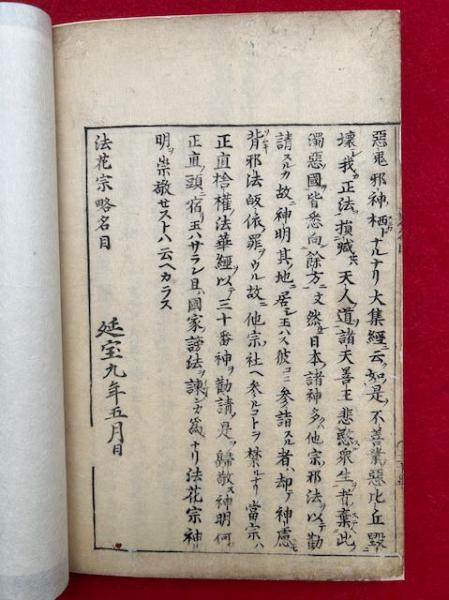 惡鬼邪神栖トナルナリ大集經云如是不善業惡比丘毀
壞我正法損減天人道諸天善王悲愍衆生者棄此
濁惡國皆悉向餘方文然日本諸神多他宗邪法以テ勸
請スルカ故神明其地ニ居玉ハス彼コニ參詣スル者ハ却テ神慮ニ
背邪法皈依罪ヲウル故ニ他宗社ヘ參ルコトヲ禁ルナリ當宗ハ
正直捨權法華經以テ三十番神ヲ勸請ス是ヲ歸敬ス神明何
正直頭ニ宿玉ハサラン且國家謗法諫シカ為ナリ法花宗神
明ヲ崇敬セストハ云ヘカラス
法花宗略名目
延宝九年五月日